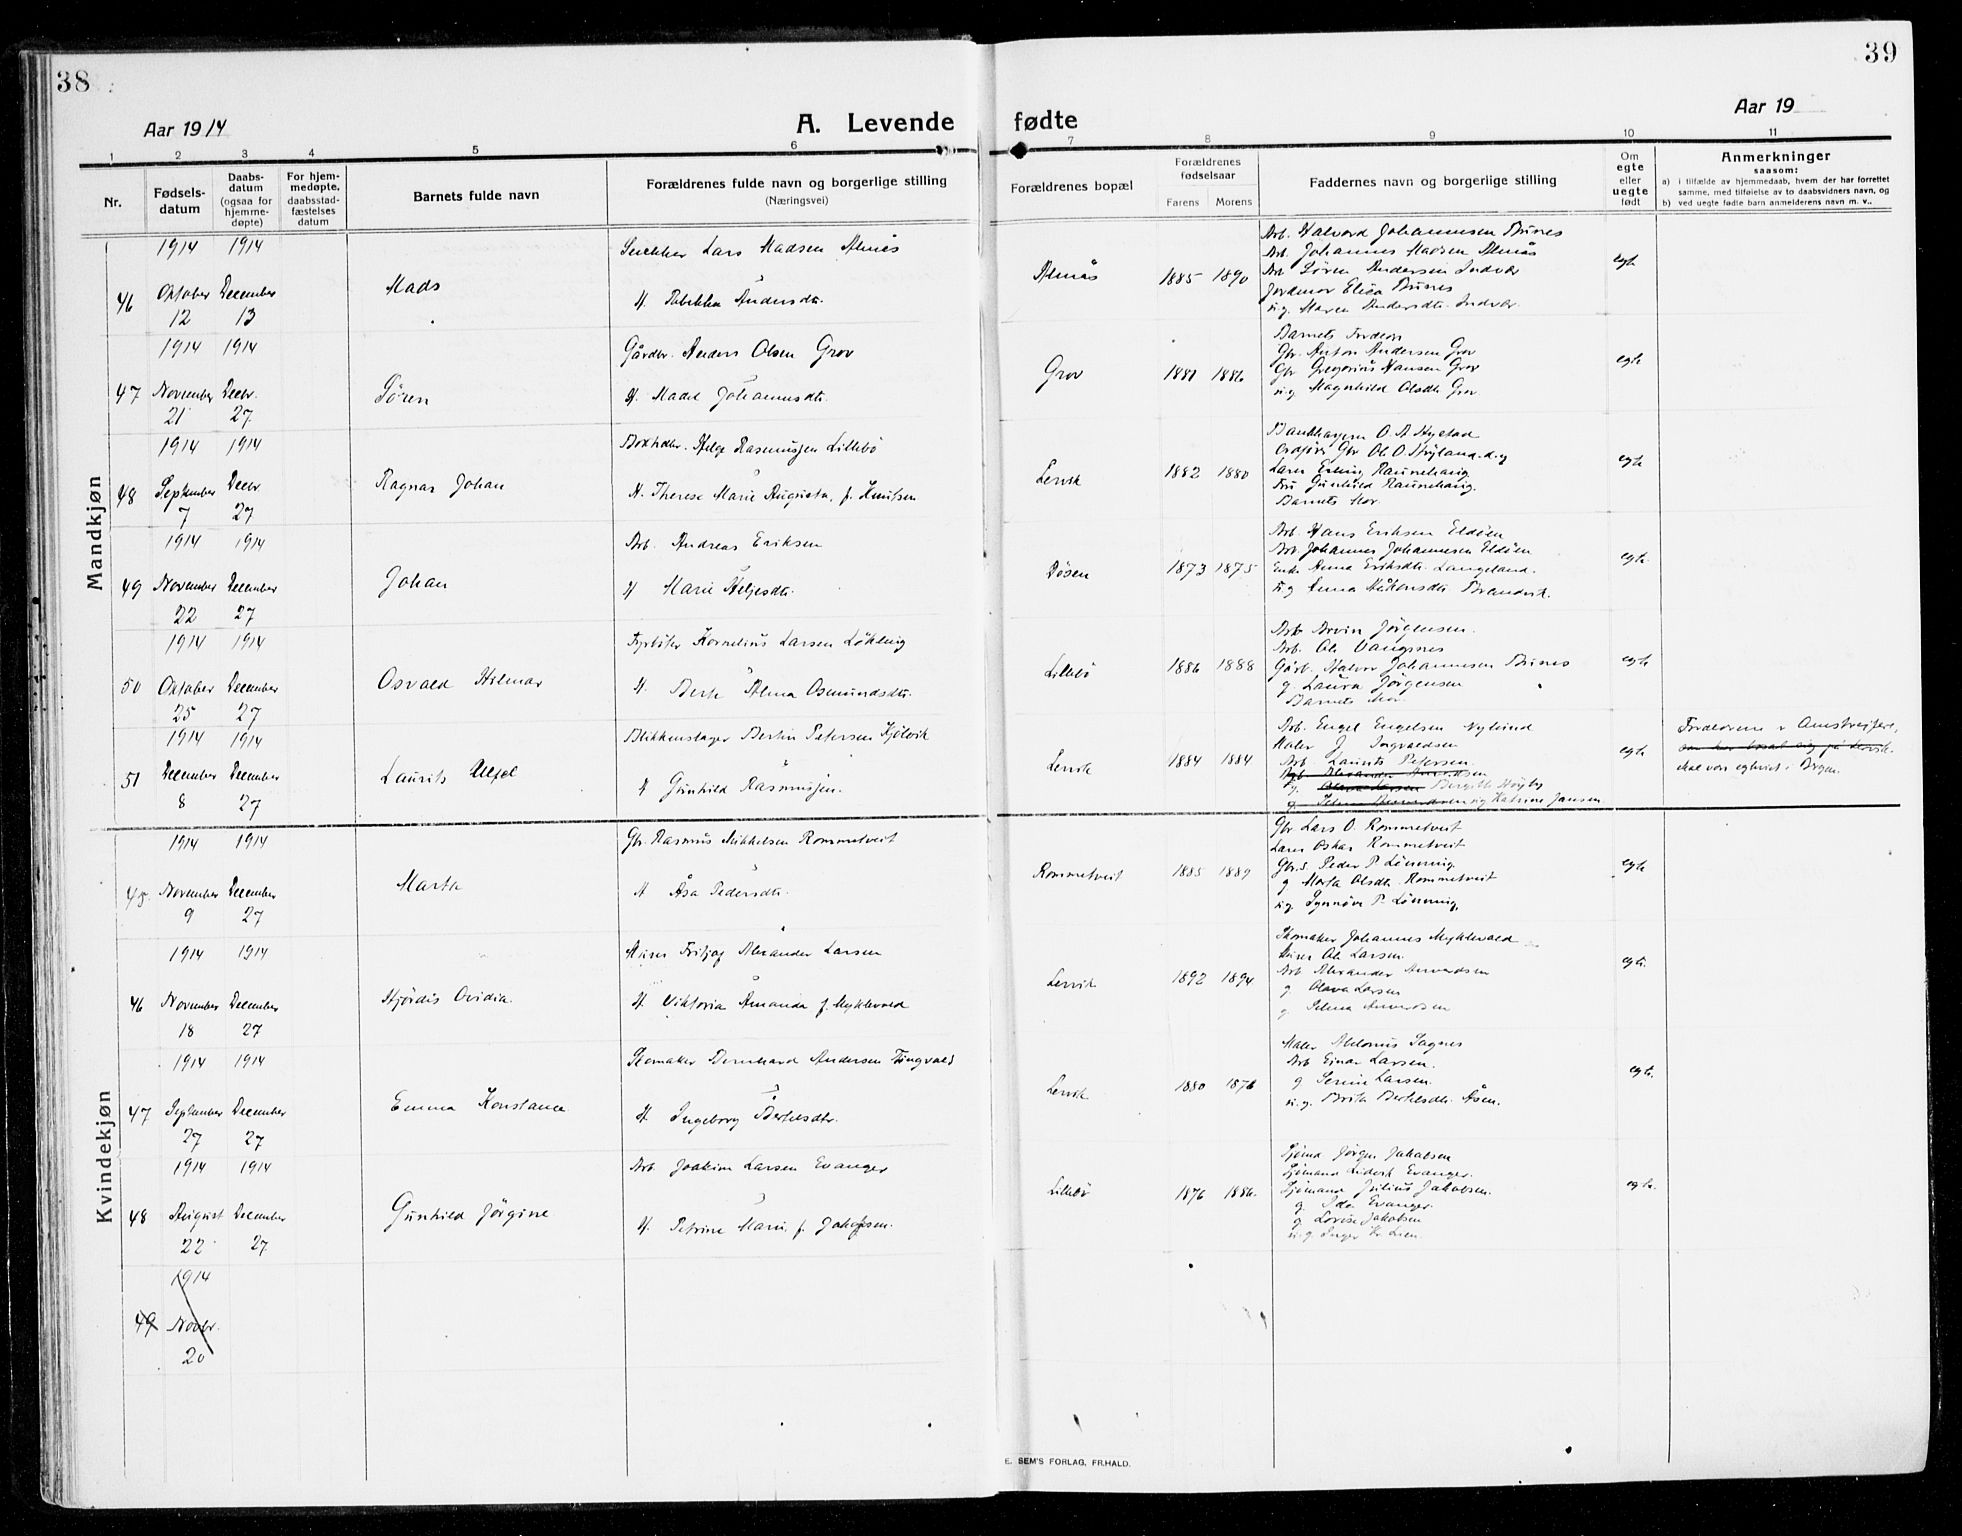 38
39
Aar 1914
A. Levende fødte
Aar 19
1 2 3 4 5 6 7 8 9 10 11
Nr.
Fødsels-
datum
Daabs-
datum
(ogsaa for
hjemme-
døpte)
For hjem-
medøpte,
daabsstad-
fæstelses
datum
Barnets fulde navn
Forældrenes fulde navn og borgerlige stilling
(Næringsvei)
Forældrenes bopæl
Forældrenes
fødselsaar
Farens Morens
Faddernes navn og borgerlige stilling
Om
egte
eller
uegte
født
Anmerkninger
saasom:
a) i tilfælde av hjemmedaab, hvem der har forrettet
samme, med tilføielse av to daabsvidners navn, og
b) ved uegte fødte barn anmelderens navn m. v..
Mandkjøn
46
1914 Oktober 12
1914 December 13
Mads
Lars Madsen Almås
Andersdtr.
Almås
1885 1890
Arb. Halvord Johannesen Bunes
Arb. Johannes Madsen Almås
Arb Sören Andersen Indvær
Jordmor Elisa Bunes
u.g. Maren Andersdtr. Indvær.
egte
47
1914 November 21
1914 Decbr. 27
Sören
Gårdbr. Anders Olsen Grov
H. Johannesdtr.
Grov
1881 1886
Barnets Fordeor
Gbr. Anton Andersen Grov
Gbr Gregorius Hansen Grov
u.g Magnhild Olsdtr Grov
egte
48
1914 September 7
1914 Decbr 27
Ragnar Johan
Helge Rasmussen Lillebö
H. Therese Marie Augusta, f. Knutsen
Lervik
1882 1880
Barnets Mor.
egte
49
1914 November 22
1914 December 27
Johan
Arb. Andreas Eriksen
H Marie Heljesdtr.
Dösen
1873 1875
Arb. Hans Eriksen Eldöen
Arb. Johannes Johannesen Eldöen
Enke Anna Eriksdtr. Langeland.
u.g Anna Håkonsdtr Brandvik.
egte.
50
1914 Oktober 25
1914 December 27
Osvald Hilmar
Fyrböter Kornelius Larsen Lökling
H. Alma Osmundsdtr.
Lillebö
1886 1888
Arb Arvin Jörgensen.
Arb. Ole Vangsnes
Gårb. Halvor Johannesen Bunes
g. Laura Jörgensen
Barnets Mor.
egte
51
1914 December 8
1914 December 27
Laurits
Blikkenslager Bertin Petersen Kjölvik
H Gunhild Rasmussen.
Lervik
1884 1884
Arb. Engel Engelsen Nylund
Maler J. Ingvaldsen
Arb. Laurits Petersen.
g. Katrine Jansen
egte
Kvindekjøn
45
1914 November 9
1914 December 27
Marta
Gbr. Rasmus Mikkelsen Rommetveit
H Åsa Pedersdtr.
Rommetveit
1885 1889
Gbr Lars O. Rommetveit
Lærer Oskar Rommetveit
Gbr.s Peder P. Lönning.
g Marta Olsdtr. Rommetveit
u.g. Synnöve P. Lönning.
egte
46
1914 November 18
1914 December 27
Hjördis Ovidia.
Fritjof Alexander Larsen
H. Viktoria Amanda f. Myklevold
Lervik
1892 1894
Skomaker Johannes Myklevold
Ole Larsen.
Arb Alexander Amundsen
g Olava Larsen
g. Selma Amundsen
egte.
47
1914 September 27
1914 December 27
Emma Konstance
Skomaker Bernhard Andersen Tingvald
H. Ingeborg Bertelsdtr.
Lervik
1880 1876
Maler Sagnes
Arb Einar Larsen.
g Serine Larsen.
u.g. Brita Bertelsdtr. Åsen.
egte.
48
1914 August 22
1914 December 27
Gunhild Jörgine
Arb. Joakim Larsen Evanger
H. Petrine Marie, f. Jakobsen.
Lillebö
1876 1886.
Sjömd Jörgen Jakobsen
Sjömand Evanger.
Sjömand Julius Jakobsen.
g. Ida Evanger.
g Lovise Jakobsen
u.g. Inger Kr. Lien
egte.
49
1914
Novbr.
20
E. SEM'S FORLAG, FR.HALD.